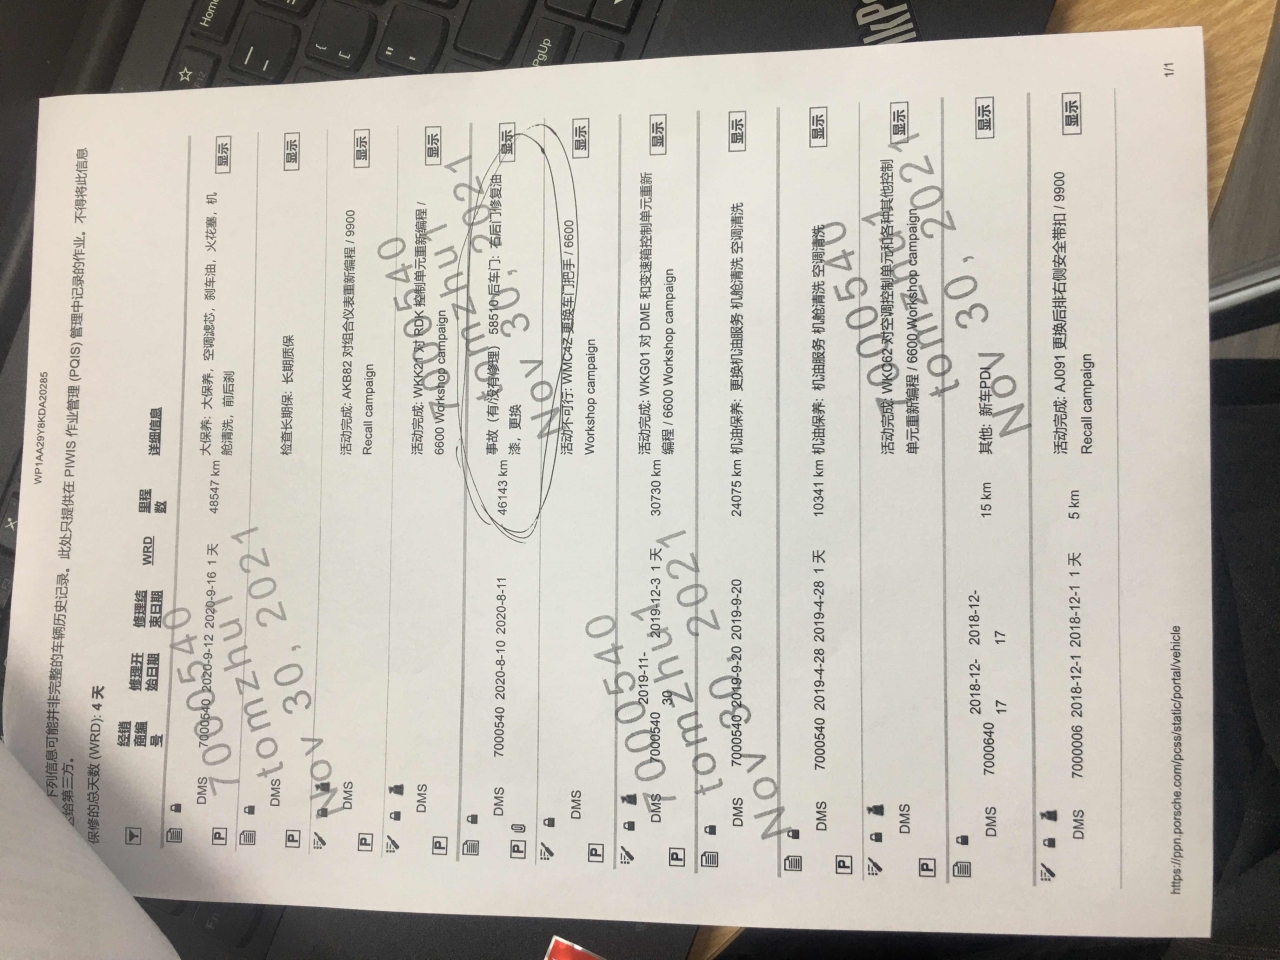 WP1AA29Y8KDA20285
下列信息可能并非完整的车辆历史记录。此处只提供在 PIWIS 作业管理 (PQIS) 管理中记录的作业。不得将此信息
给第三方。
保修的总天数 (WRD): 4 天
经销商编号 修理开始日期 修理结束日期 WRD 里程数 详细信息
DMS 7000540 2020-9-12 2020-9-16 1 天 48547 km 大保养: 大保养, 空调滤芯, 刹车油, 火花塞, 机
舱清洗, 前后刹
显示
DMS 检查长期保: 长期质保
显示
DMS 活动完成: AKB82 对组合仪表重新编程 / 9900
Recall campaign
显示
DMS 活动完成: WKK21 对 RDK 控制单元重新编程 /
6600 Workshop campaign
显示
DMS 7000540 2020-8-10 2020-8-11 46143 km 事故（有/没有修理） 58510 后车门: 右后门修复油
漆, 更换
显示
DMS 活动不可行: WMC42 更换车门把手 / 6600
Workshop campaign
显示
DMS 7000540 2019-11-30 2019-12-3 1 天 30730 km 活动完成: WKG01 对 DME 和变速箱控制单元重新
编程 / 6600 Workshop campaign
显示
DMS 7000540 2019-9-20 2019-9-20 24075 km 机油保养: 更换机油服务 机舱清洗 空调清洗
显示
DMS 7000540 2019-4-28 2019-4-28 1 天 10341 km 机油保养: 机油服务 机舱清洗 空调清洗
显示
DMS 活动完成: WKC62 对空调控制单元和各种其他控制
单元重新编程 / 6600 Workshop campaign
显示
DMS 7000640 2018-12-17 2018-12-17 15 km 其他: 新车PDI
显示
DMS 7000006 2018-12-1 2018-12-1 1 天 5 km 活动完成: AJ091 更换后排右侧安全带扣 / 9900
Recall campaign
显示
7000540
tomzhu1
Nov 30, 2021
7000540
tomzhu1
Nov 30, 2021
7000540
tomzhu1
Nov 30, 2021
7000540
tomzhu1
Nov 30, 2021
https://ppn.porsche.com/pcss/static/portal/vehicle
1/1
Home
PgUp